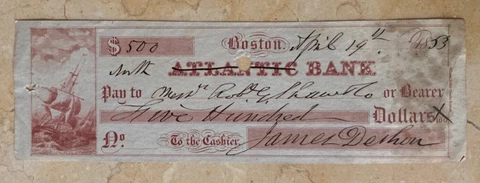 $ 500 Boston, April 19th 1853
ATLANTIC BANK.
Pay to Messrs. Robt. G. Shaw & Co or Bearer
Five Hundred Dollars
No. To the Cashier. James Deshon